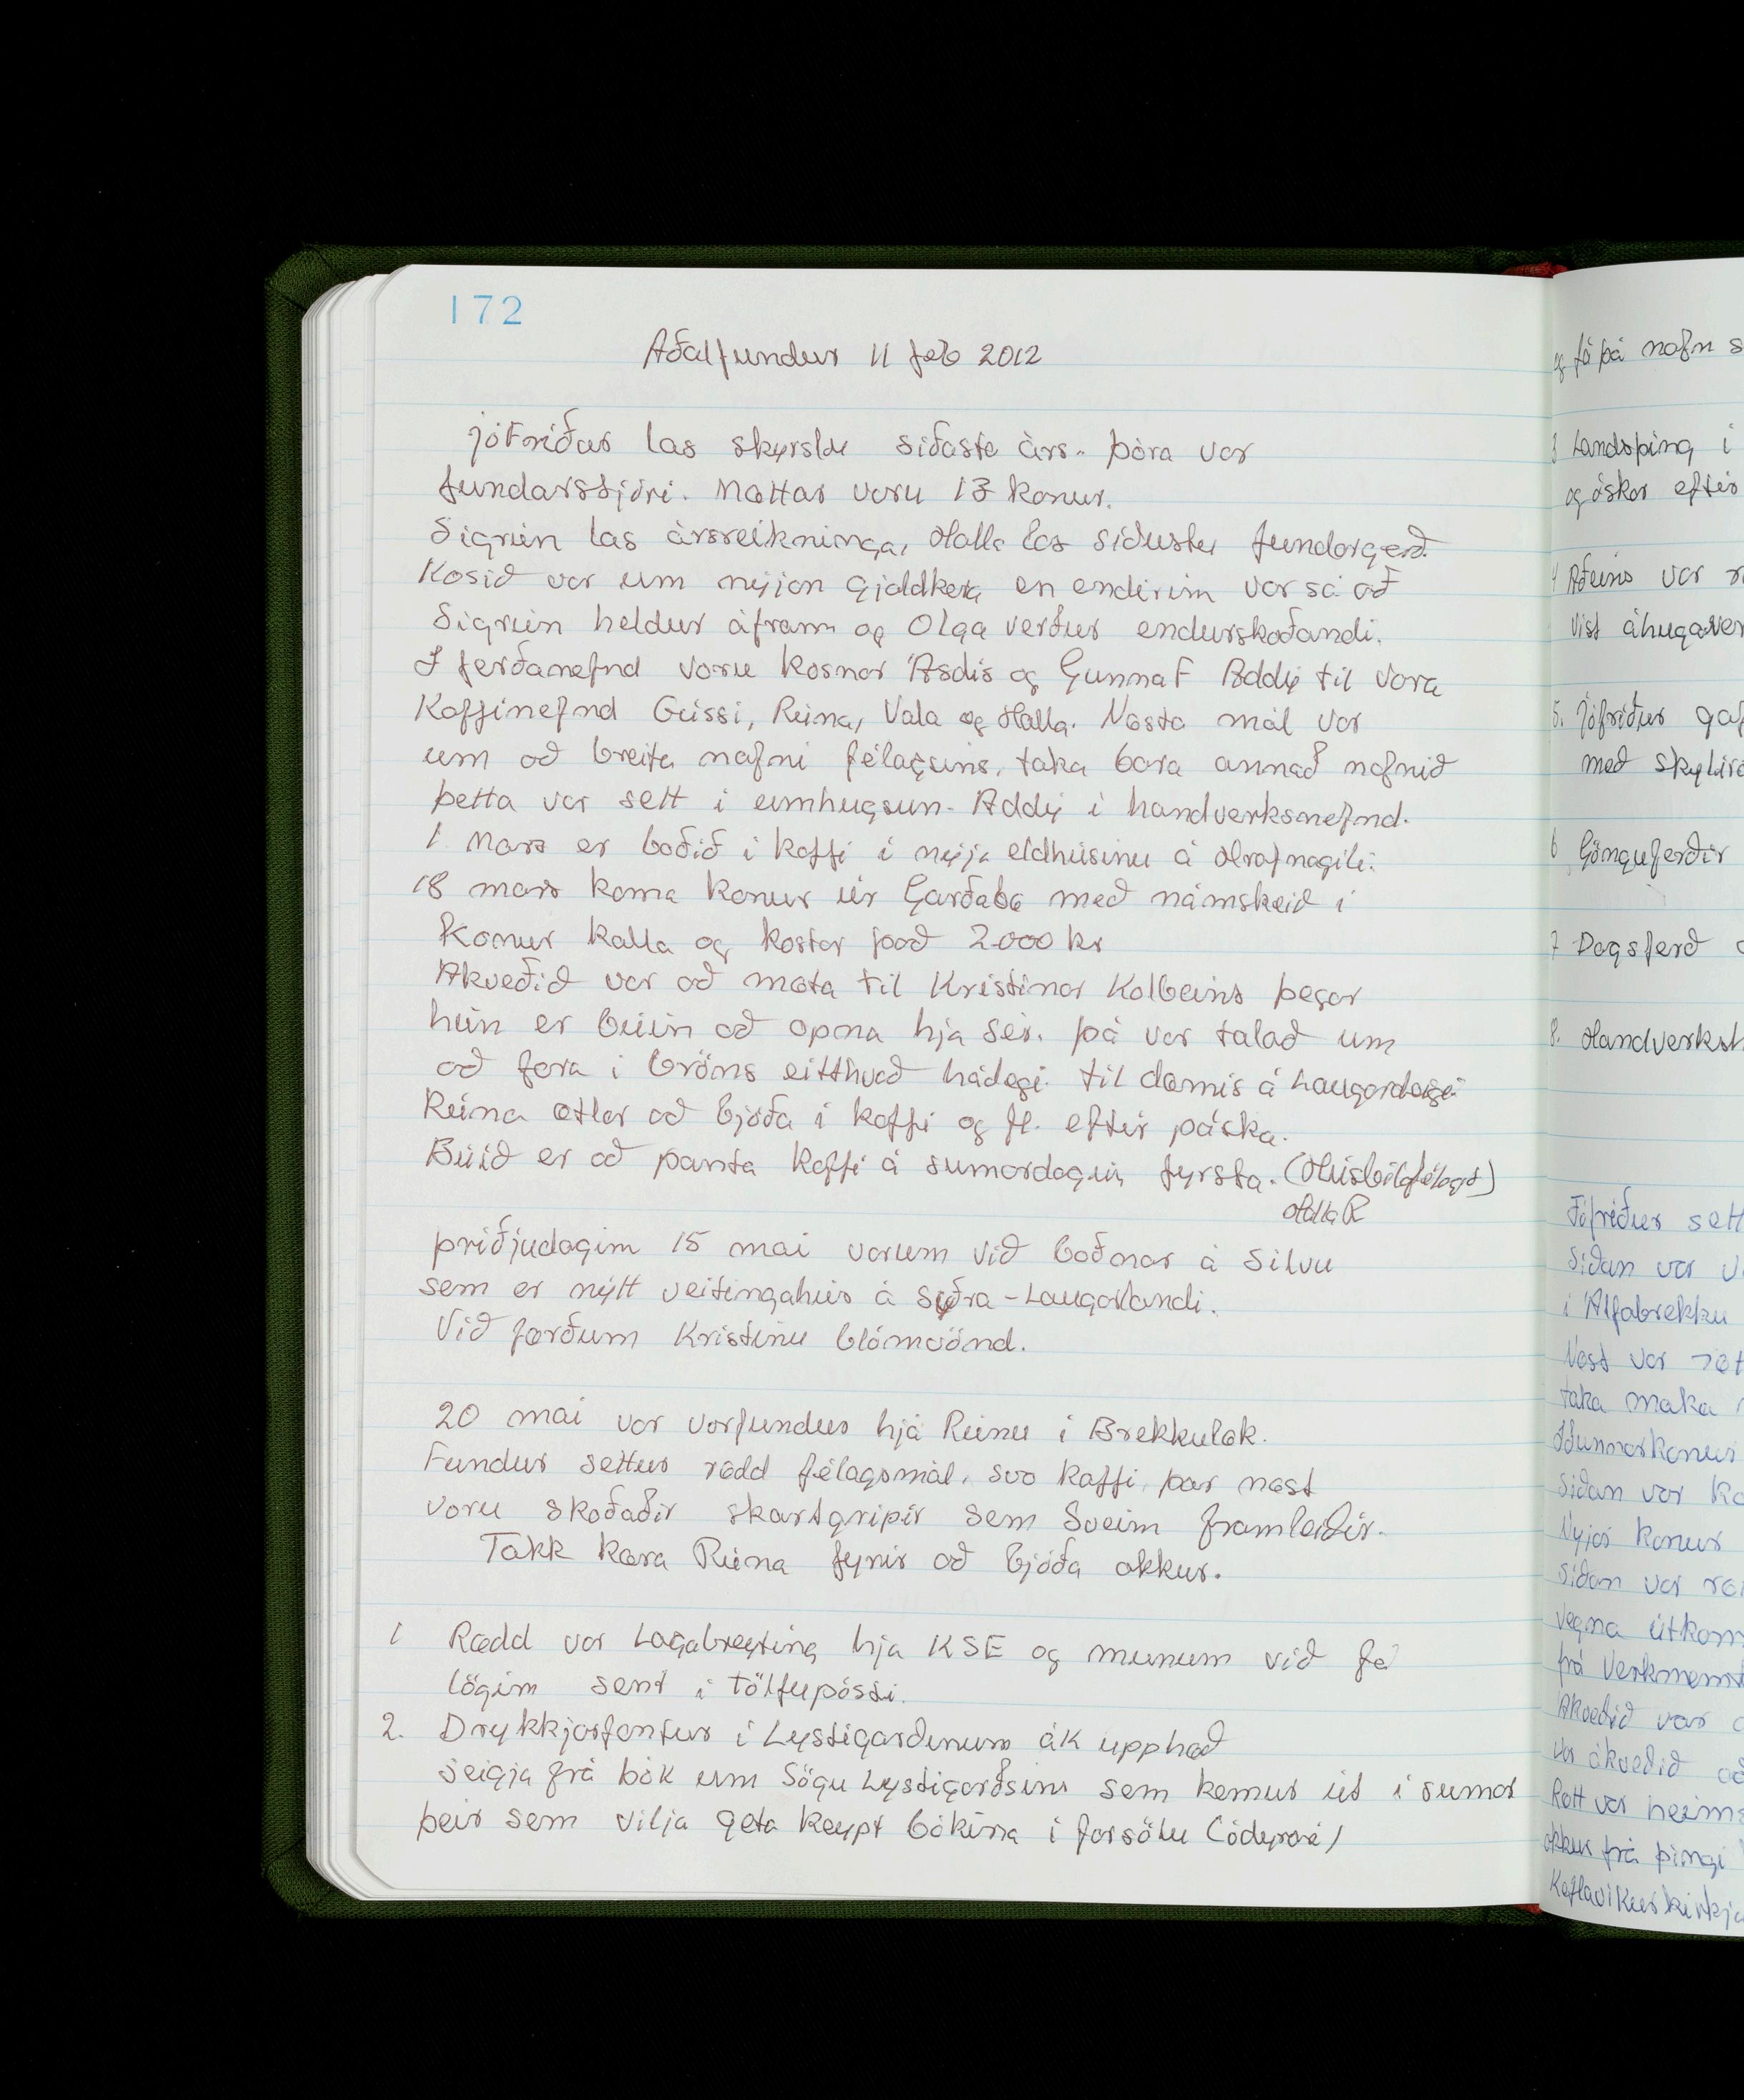 172
Aðalfundur 11 feb 2012
Jófríður las skyrslu siðasta árs. Þóra var
fundarstjóri. Mættar voru 13 konur.
Sigrún las ársreikninga, Halla las siðustu fundargerð.
Kosið var um nýjan gjaldkera en endirinn var sá að
Sigrún heldur áfram og Olga verður endurskoðandi.
Í ferðanefnd voru kosnar Ásdís og Gunna F Addý til vara
Kaffinefnd Gússi, Rúna, Vala og Halla. Næsta mál var
um að breita nafni félagsins, taka bara annað nafnið
þetta var sett í umhugsun. Addý í handverksnefnd.
1. Mars er boðið í kaffi í nýja eldhúsinu á Hrafnagili.
18 mars koma konur úr Garðabæ með námskeið í
Konur kalla og kostar það 2000 kr
Akveðið var að mæta til Kristínar Kolbeins þegar
hún er búin að opna hjá sér. Þá var talað um
að fara í bröns eitthvað hádegi til dæmis á Laugardegi.
Rúna ætlar að bjóða í kaffi og fl. eftir páska.
Búið er að panta kaffi á sumardaginn fyrsta. (Húsbílafélagið)
Halla R
þriðjudaginn 15 mai vorum við boðnar á Silvu
sem er nýtt veitingahús á Syðra-Laugalandi.
Við færðum Kristínu blómvönd.
20 mai var vorfundur hjá Rúnu í Brekkulæk.
Fundur settur rædd félagsmál, svo kaffi, þar næst
voru skoðaðir skartgripir sem Sveinn framleiðir.
Takk kæra Rúna fyrir að bjóða okkur.
1 Rædd var Lagabreyting hjá KSE og munum við fá
lögin sent í tölfupósti.
2. Drykkjarfontur í Lystigarðinum ÁK upphæð
seigja frá bók um Sögu Lystigarðsins sem kemur út í sumar
þeir sem vilja geta keypt bókina í forsölu (ódyrari)
og fá þá nafn s
3 Landsþing í
og óskar eftir
4 Aðeins var r
víst áhugaver
5. Jófríður gaf
með skyldra
6 Gönguferðir
7 Dagsferð
8. Handverksh
Jófríður sett
Síðan var v
í Álfabrekku
Næst var ræt
taka maka
Iðunnarkonur
Síðan var ka
Nyjar konur
síðan var ræ
vegna útkom
frá
Akveðið var
var ákveðið að
Rætt var heims
okkur frá þingi
Keflavíkurkirkju